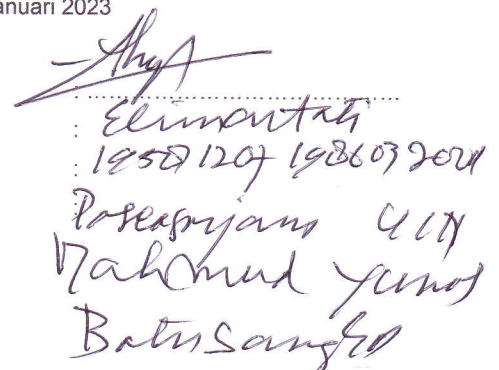 anuari 2023
Elimartati
: 19581207 198603 2001
: Pascasarjana UIN
Mahmud Yunus
Batusangkar